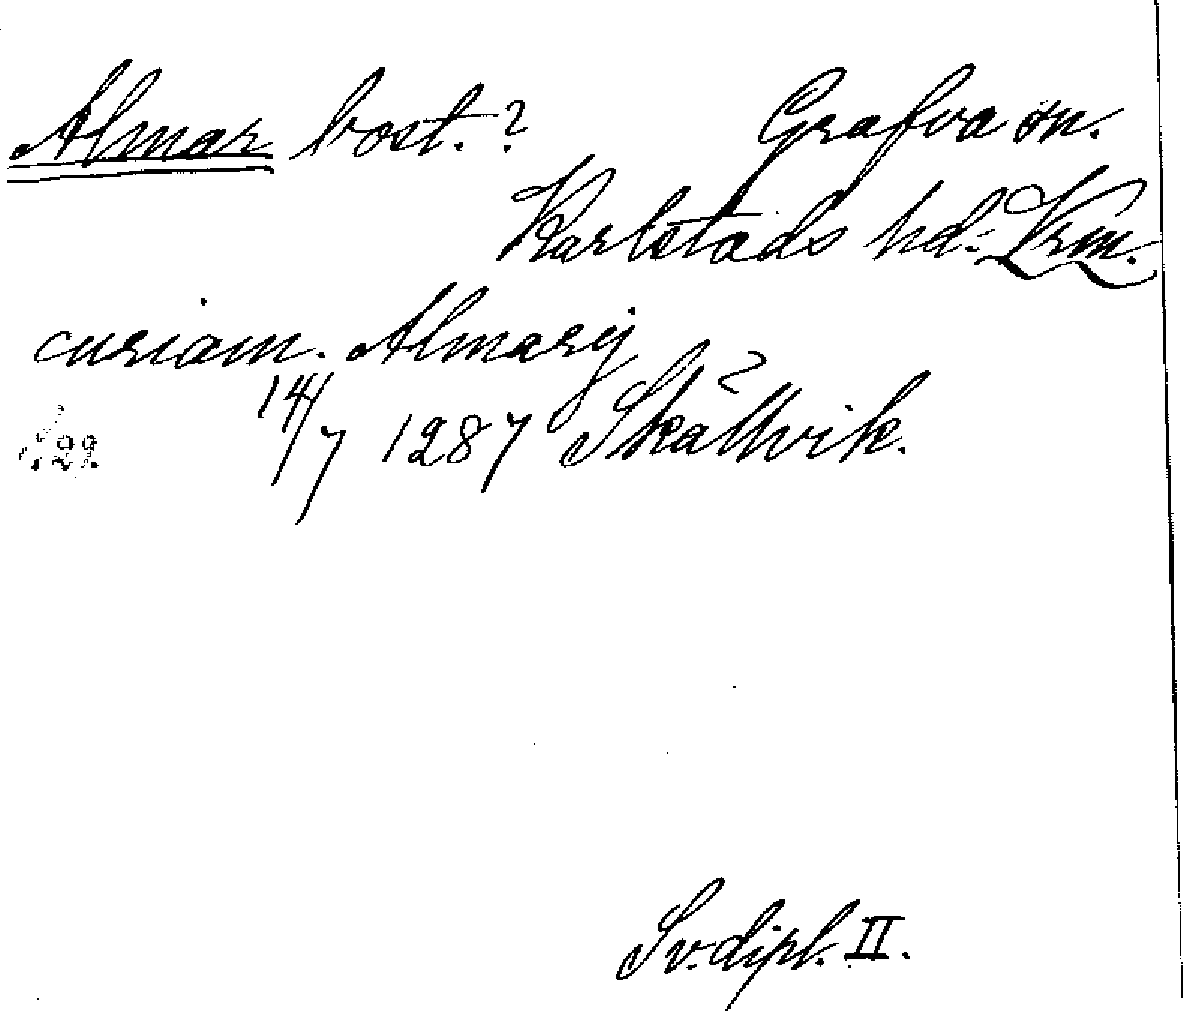 Almar bost.? Grafva sn.
Karlstads hd. Vrm.
curiam. Almarij
14/7 1287 Skällvik.
Sv. dipl. II.